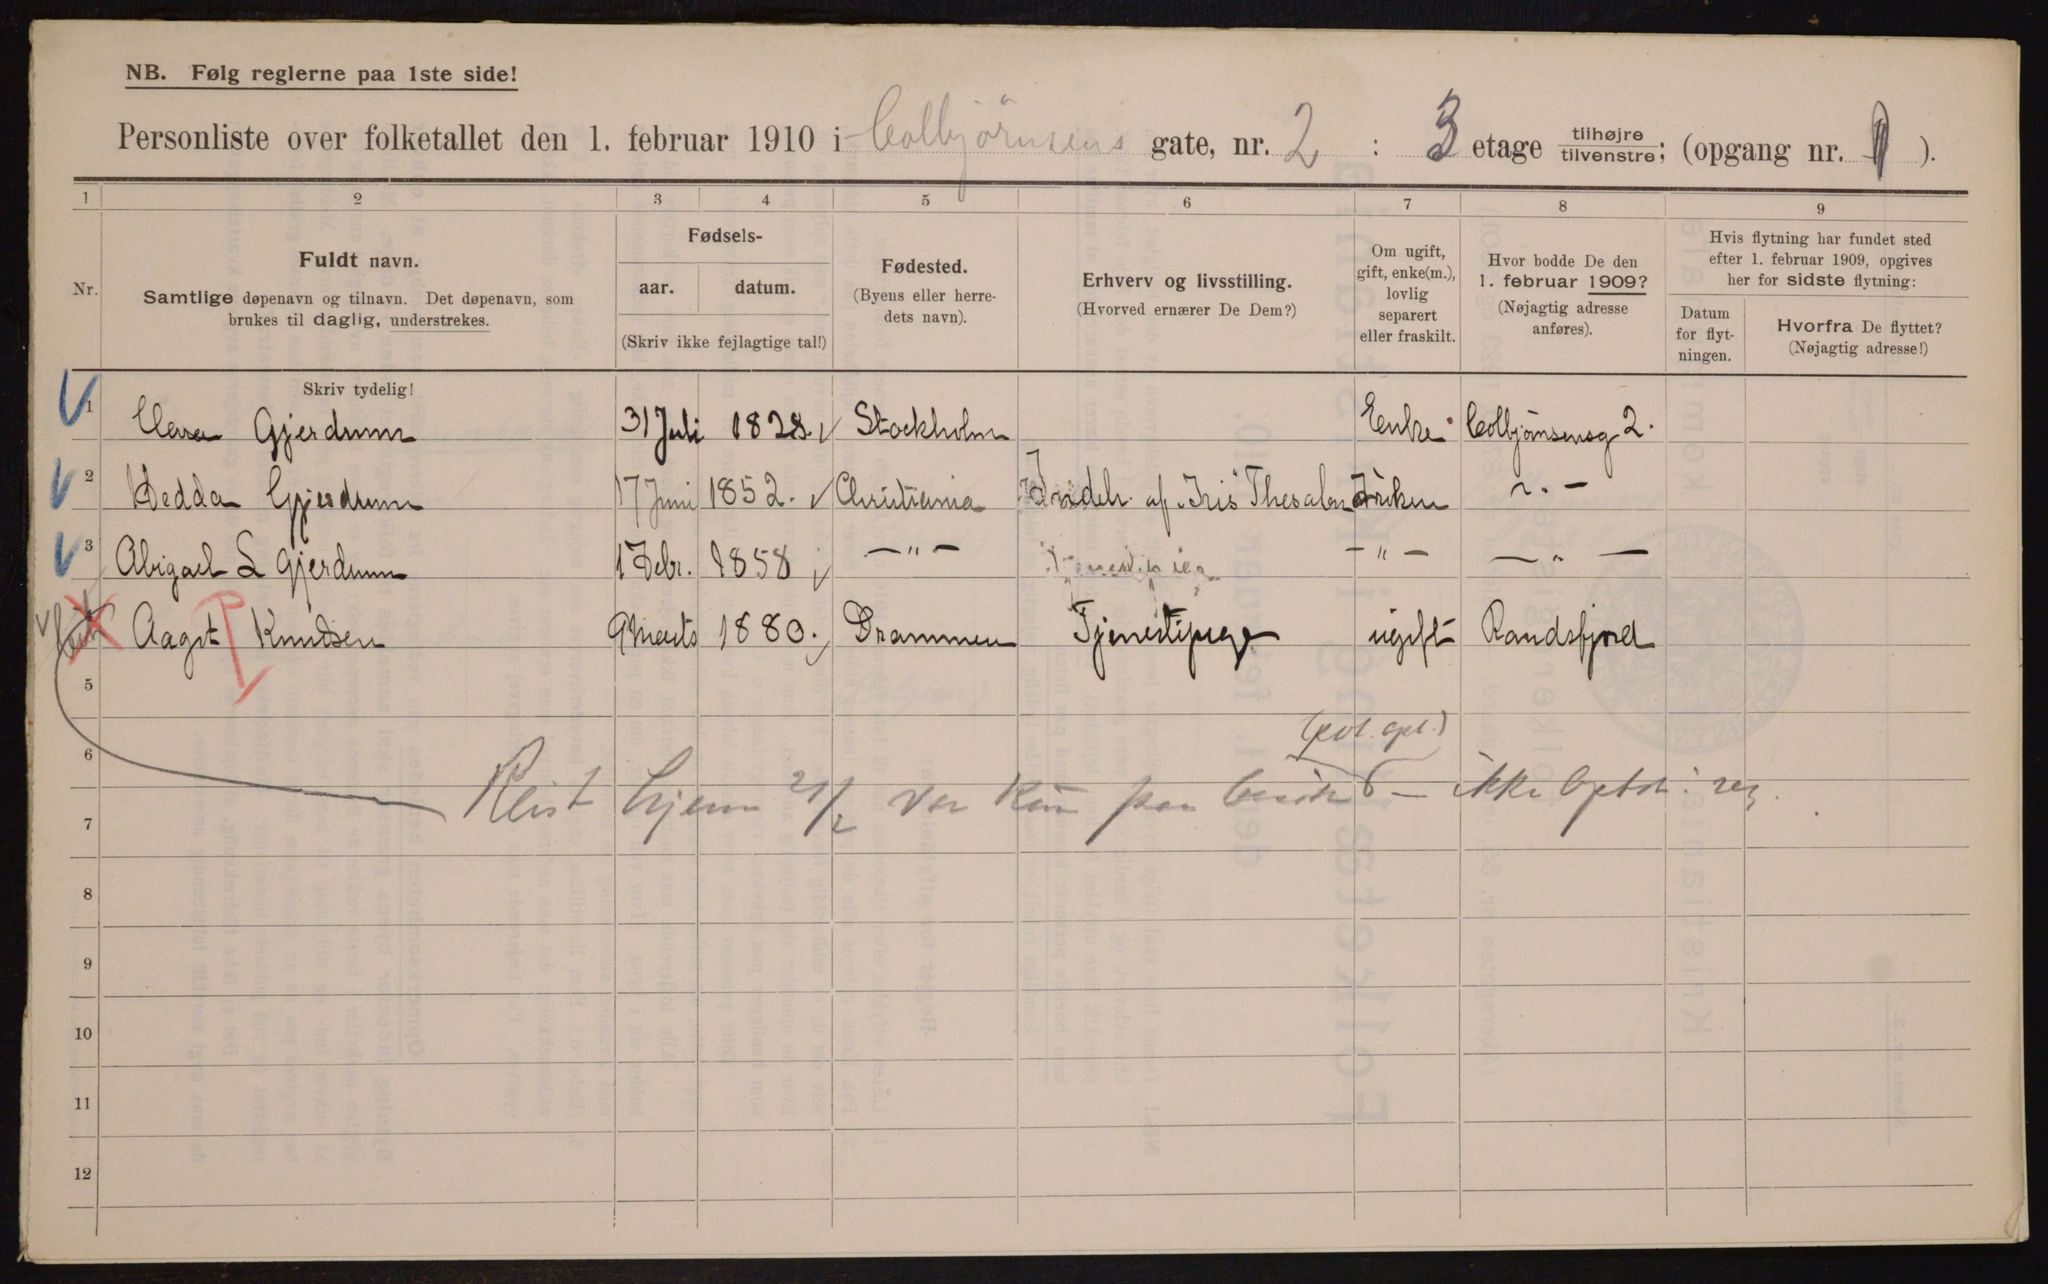 NB. Følg reglerne paa 1ste side!
Personliste over folketallet den 1. februar 1910 i Colbjörnsens gate, nr. 2 : 3 etage tilhøjre/tilvenstre; (opgang nr. 1 ).
1 2 3 4 5 6 7 8 9
Nr.
Fuldt navn.
Samtlige døpenavn og tilnavn. Det døpenavn, som
brukes til daglig, understrekes.
Fødsels-
aar. datum.
(Skriv ikke fejlagtige tal!)
Fødested.
(Byens eller herre-
dets navn).
Erhverv og livsstilling.
(Hvorved ernærer De Dem?)
Om ugift,
gift, enke(m.),
lovlig
separert
eller fraskilt.
Hvor bodde De den
1. februar 1909?
(Nøjagtig adresse
anføres).
Hvis flytning har fundet sted
efter 1. februar 1909, opgives
her for sidste flytning:
Datum
for flyt-
ningen.
Hvorfra De flyttet?
(Nøjagtig adresse!)
Skriv tydelig!
1 Clara Gjerdrum 31 Juli 1828 Stockholm Enke Colbjönsensg 2.
2 Hedda Gjerdrum 17 Juni 1852. Christiania af "Iris" Fröken " –
3 Abigael L Gjerdrum 1 Febr. 1858 – " – – " – – " –
Aagot Knudsen 9 Marts 1880. Drammen Tjenestepige ugift Randsfjord
5
6
(pol. opl.)
Reist hjem 21/2 var kun paa besök – ikke
7
8
9
10
11
12